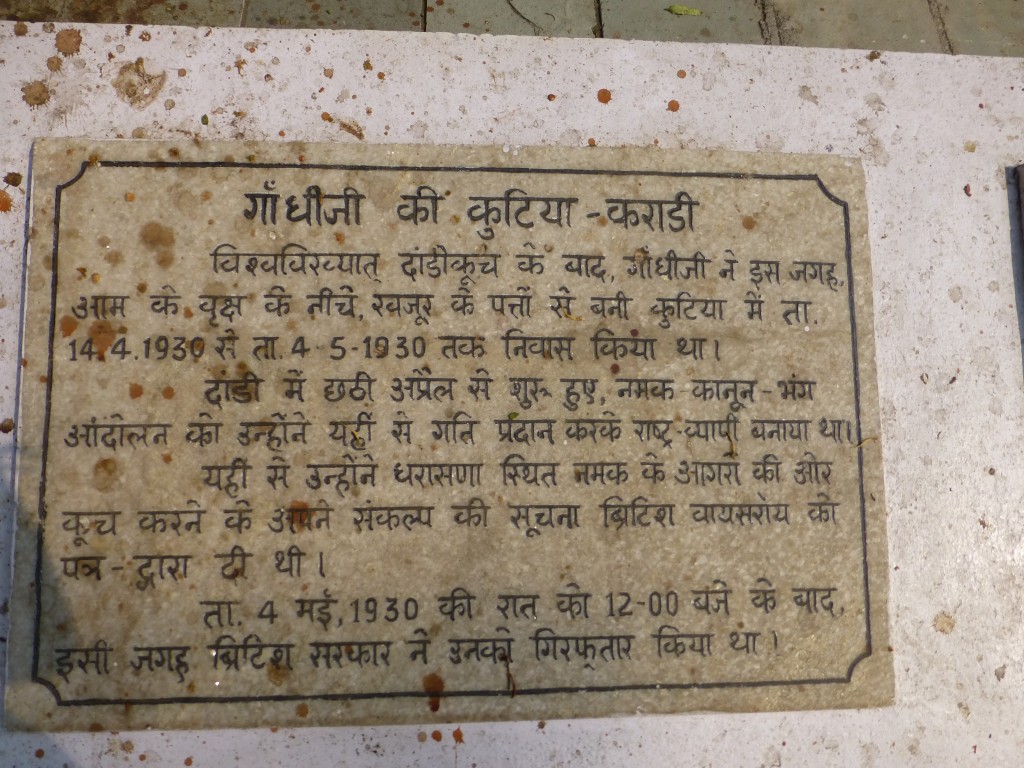 गाँधीजी की कुटिया - कराडी
विश्वविख्यात् दांडीकूच के बाद, गाँधीजी ने इस जगह,
आम के वृक्ष के नीचे, खजूर के पत्तों से बनी कुटिया में ता.
14.4.1930 से ता. 4-5-1930 तक निवास किया था।
दांडी में छठी अप्रैल से शुरू हुए, नमक-कानून-भंग
आंदोलन को उन्होंने यहीं से गति प्रदान करके राष्ट्र-व्यापी बनाया था।
यहीं से उन्होंने धरासणा स्थित नमक के आगरों की ओर
कूच करने के अपने संकल्प की सूचना ब्रिटिश वायसरॉय को
पत्र-द्वारा दी थी।
ता. 4 मई, 1930 की रात को 12-00 बजे के बाद,
इसी जगह ब्रिटिश सरकार ने उनको गिरफ्तार किया था।